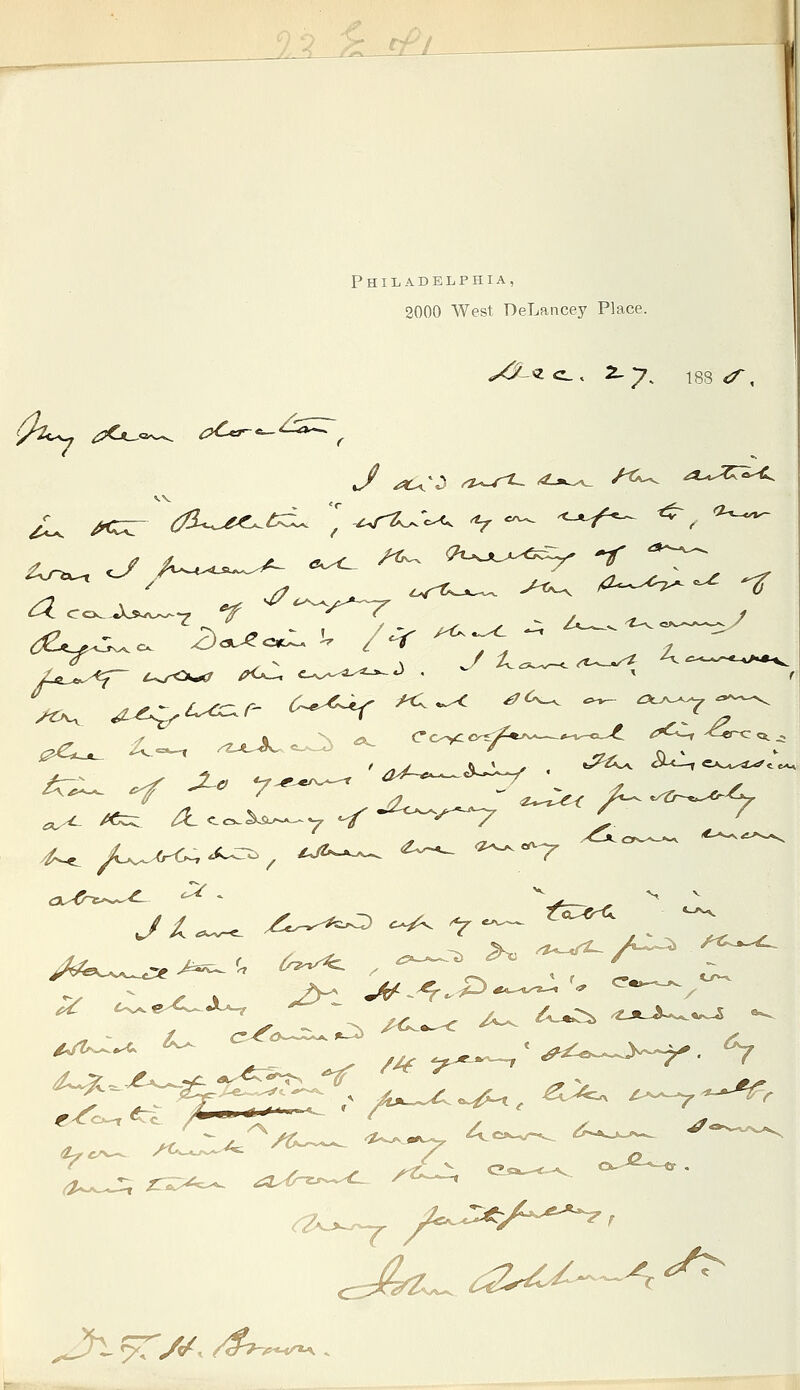 Philadelphia,
2000 West DeLancey Place.
Dec. 27. 1885.
My dear doctor,
I did not see the article
in the "Bulletin", which you refer to, nor
was I present at the meeting of our
Academy of Surgery when the subject of
Regina Dalcin's (if that is her name)
feat was discussed. I have not, however,
the slightest belief that she or any one
else has reduced a coxo-femoral disloca-
tion of 20 years' standing. The discussion
at the Academy of Surgery will probably
be published, when we may learn more
about it.
I have looked up your "table" in
Hamilton's book, and do not find that
it includes Dr. H.G. Davis's case, in
which he claimed that he had reduced a
hip-luxation of 14 years' standing, by
elastic extension; perhaps, like myself,
you think there may have been some
mistake about this case also.
Very faithfully,
John Ashhurst, Jr.
Dr. F. H. Brown.